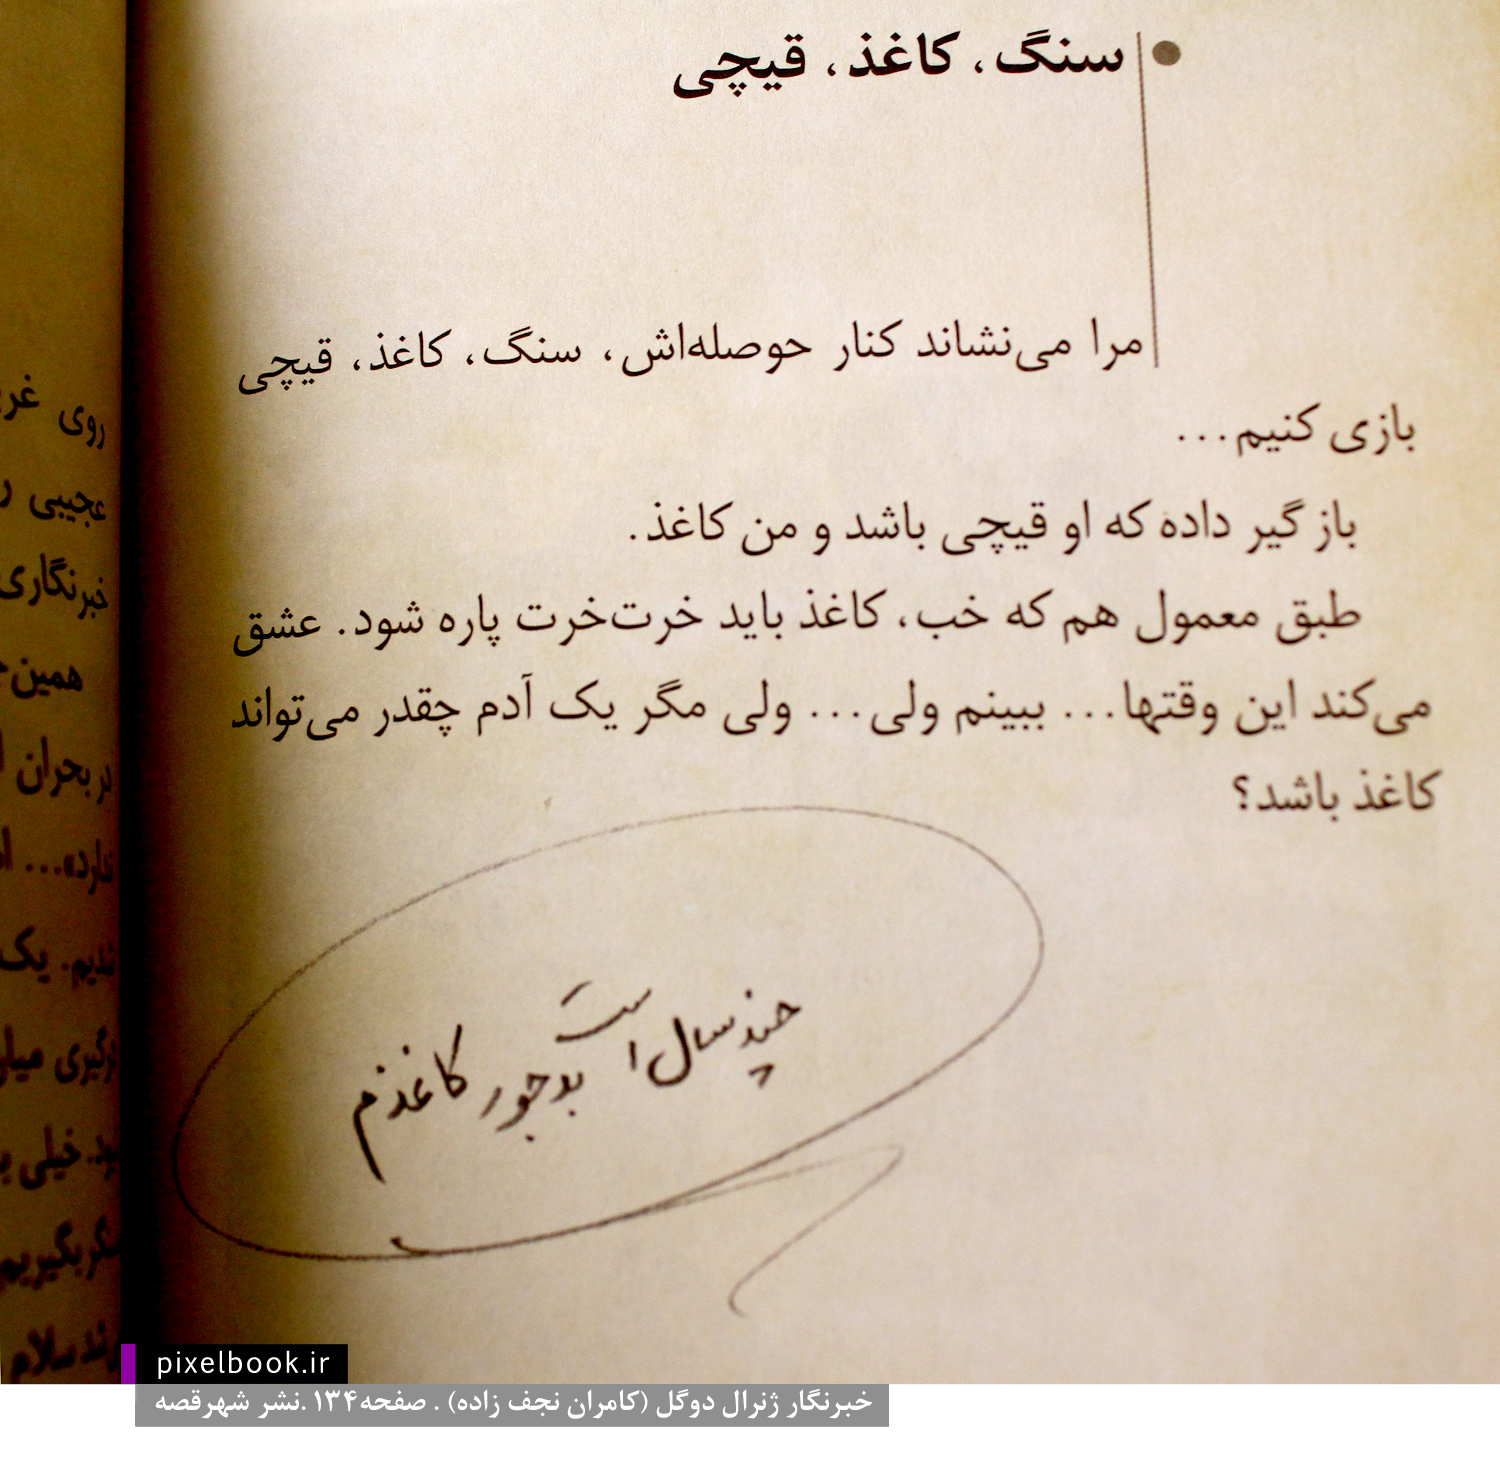 سنگ، کاغذ، قیچی
مرا می‌نشاند کنار حوصله‌اش، سنگ، کاغذ، قیچی
بازی کنیم...
باز گیر داده که او قیچی باشد و من کاغذ.
طبق معمول هم که خب، کاغذ باید خرت‌خرت پاره شود. عشق
می‌کند این وقتها... ببینم ولی... ولی مگر یک آدم چقدر می‌تواند
کاغذ باشد؟
چند سال است بدجور کاغذم
روی
عجیبی
خبرنگاری
بحران
یک
خیلی
سلام
pixelbook.ir
خبرنگار ژنرال دوگل (کامران نجف زاده) . صفحه۱۳۴ .نشر شهرقصه